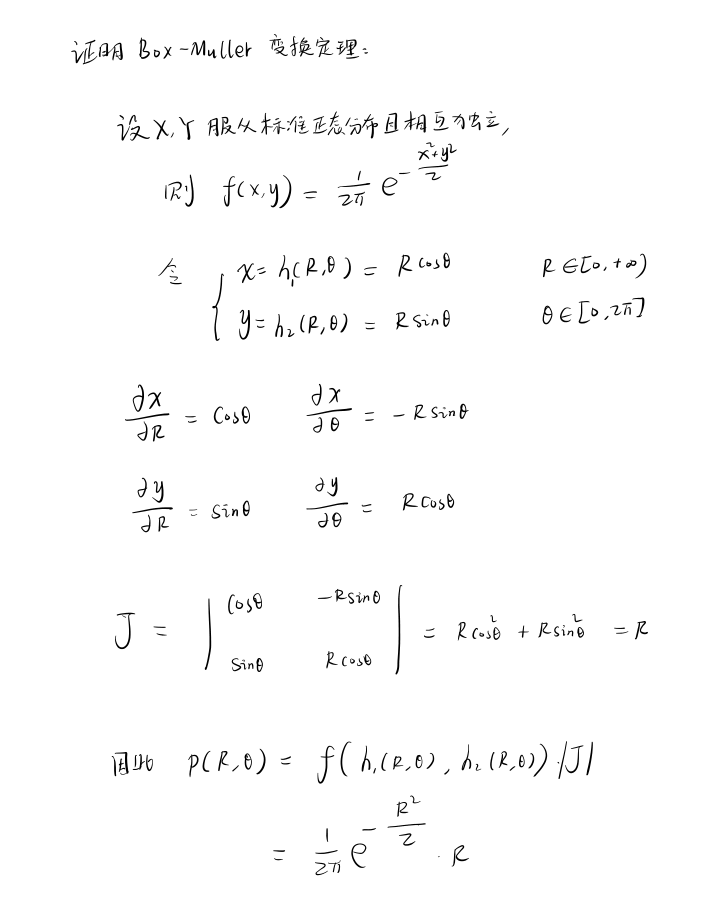 证明 Box-Muller 变换定理:
设 X,Y 服从标准正态分布且相互独立,
则 f(x,y) = 1/2π e^(-(x²+y²)/2)
令 { x = h₁(R,θ) = R cosθ R∈[0,+∞)
y = h₂(R,θ) = R sinθ θ∈[0,2π]
∂x/∂R = cosθ ∂x/∂θ = -R sinθ
∂y/∂R = sinθ ∂y/∂θ = R cosθ
J = | cosθ -R sinθ
sinθ R cosθ | = R cos²θ + R sin²θ = R
因此 p(R,θ) = f(h₁(R,θ), h₂(R,θ)) |J|
= 1/2π e^(-R²/2) · R